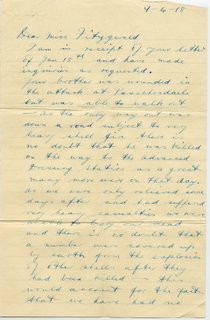 4-4-18
Dear Miss Fitzgerald
I am in receipt of your letter
of Jan 18th and have made
inquiries as requested.
Your brother was wounded in
the attack at Passchendaele
but was able to walk out
As the only way out was
down a road subject to very
heavy shell fire there is
no doubt that he was killed
on the way to the advanced
dressing station as a great
many men were on that day.
As we were only relieved some
days after and had suffered
very heavy casualties we were
our dead
and there is no doubt that
a number were covered up
by earth from the explosion
of other shells after they
had been killed this
would account for the fact
that we have had no